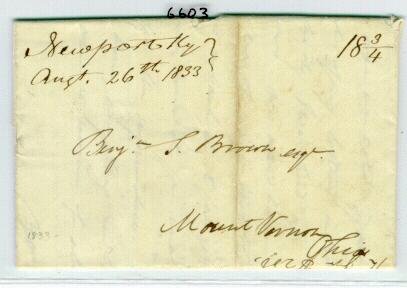 6603
Newport Ky
Augt. 26th 1833
18 3/4
Benjn. S. Brown esqr.
Mount Vernon
Ohio
1833